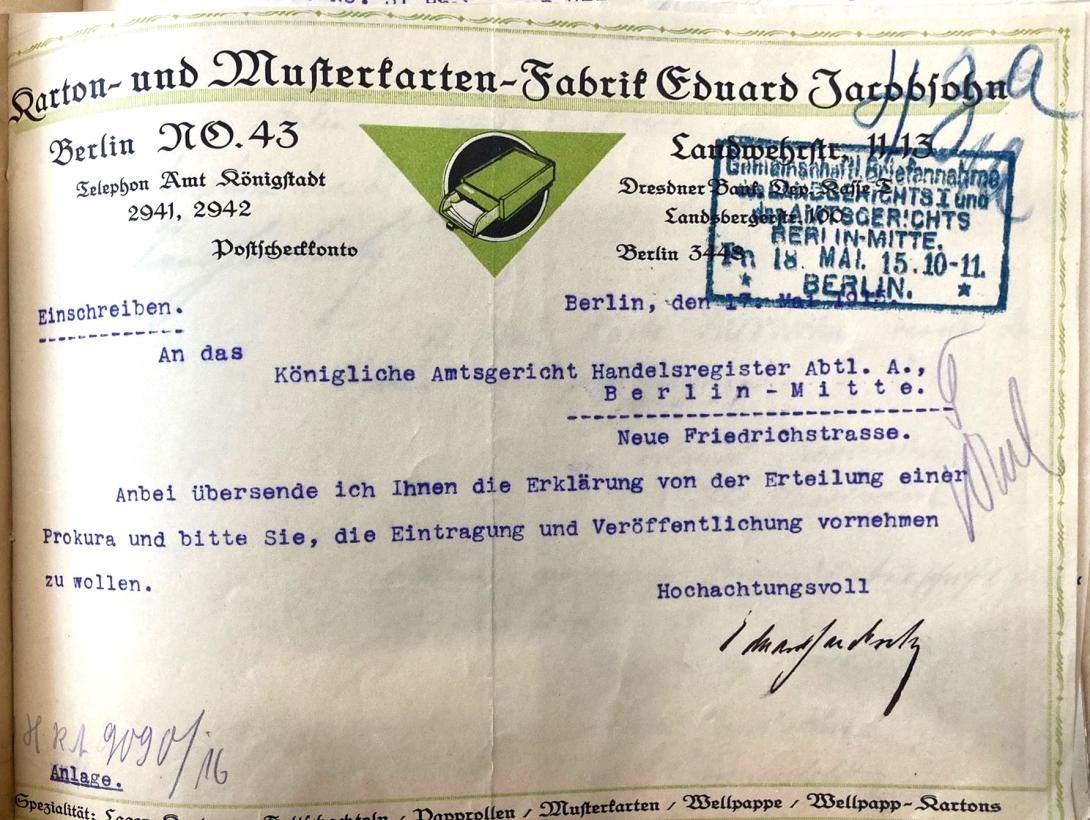 Karton- und Musterkarten-Fabrik Eduard Jacobsohn
Berlin NO. 43
Telephon Amt Königstadt
2941, 2942
Postscheckkonto
Landwehrstr. 11-13
Dresdner Bank, Dep.-Kasse
Landsbergerstr. 100
Berlin
Gemeinschaftl. Briefannahme
des LANDGERICHTS I und
des AMTSGERICHTS
BERLIN-MITTE.
18. MAI. 15. 10-11.
* BERLIN. *
Einschreiben.
Berlin, den 17. Mai
An das
Königliche Amtsgericht Handelsregister Abtl. A.,
Berlin-Mitte.
Neue Friedrichstrasse.
Anbei übersende ich Ihnen die Erklärung von der Erteilung einer
Prokura und bitte Sie, die Eintragung und Veröffentlichung vornehmen
zu wollen.
Hochachtungsvoll
9090/16
Anlage.
Spezialität: / Papprollen / Musterkarten / Wellpappe / Wellpapp-Kartons